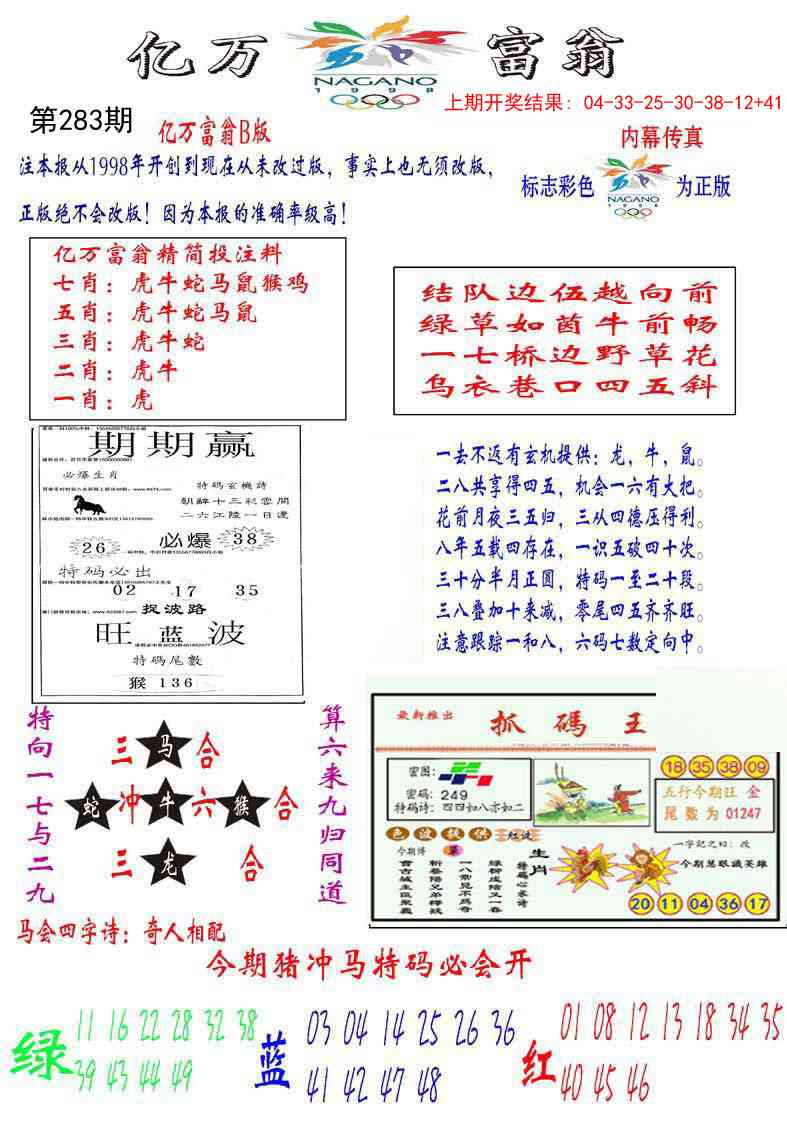 亿万
富翁
NAGANO
1998
上期开奖结果：04-33-25-30-38-12+41
第283期
亿万富翁B版
内幕传真
注本报从1998年开创到现在从未改过版，事实上也无须改版，
正版绝不会改版！因为本报的准确率级高！
标志彩色
NAGANO
1998
为正版
亿万富翁精简投注料
七肖：虎牛蛇马鼠猴鸡
五肖：虎牛蛇马鼠
三肖：虎牛蛇
二肖：虎牛
一肖：虎
结队边伍越向前
绿草如茵牛前畅
一七桥边野草花
乌衣巷口四五斜
期期赢
必爆生肖
特码玄機詩
朝辭十三彩雲間
二六江陸一日還
26
必爆
38
特码必出
02 17 35
捉波路
旺蓝波
特碼尾數
猴136
一去不返有玄机提供：龙，牛，鼠。
二八共享得四五，机会一六有大把。
花前月夜三五归，三从四德压得利。
八年五载四存在，一识五破四十次。
三十分半月正圆，特码一至二十段。
三八叠加十来减，零尾四五齐齐旺。
注意跟踪一和八，六码七数定向中。
特向一七与二九
三马合
蛇冲牛六猴合
三龙合
算六来九归同道
最新推出
抓碼王
密图：
密码：249
特码诗：四四如八亦如二
18 35 38 09
五行今期旺 金
尾数为 01247
色波提供
红波
今期博
第
生肖
特碼心水诗
绿柳成陰又一春
一八常见不爲奇
斬秦陽兄弟釋疑
會古城主臣聚義
一字記之曰：茂
今期慧眼識英雄
20 11 04 36 17
马会四字诗：奇人相配
今期猪冲马特码必会开
绿
11 16 22 28 32 38
39 43 44 49
蓝
03 04 14 25 26 36
41 42 47 48
红
01 08 12 13 18 34 35
40 45 46